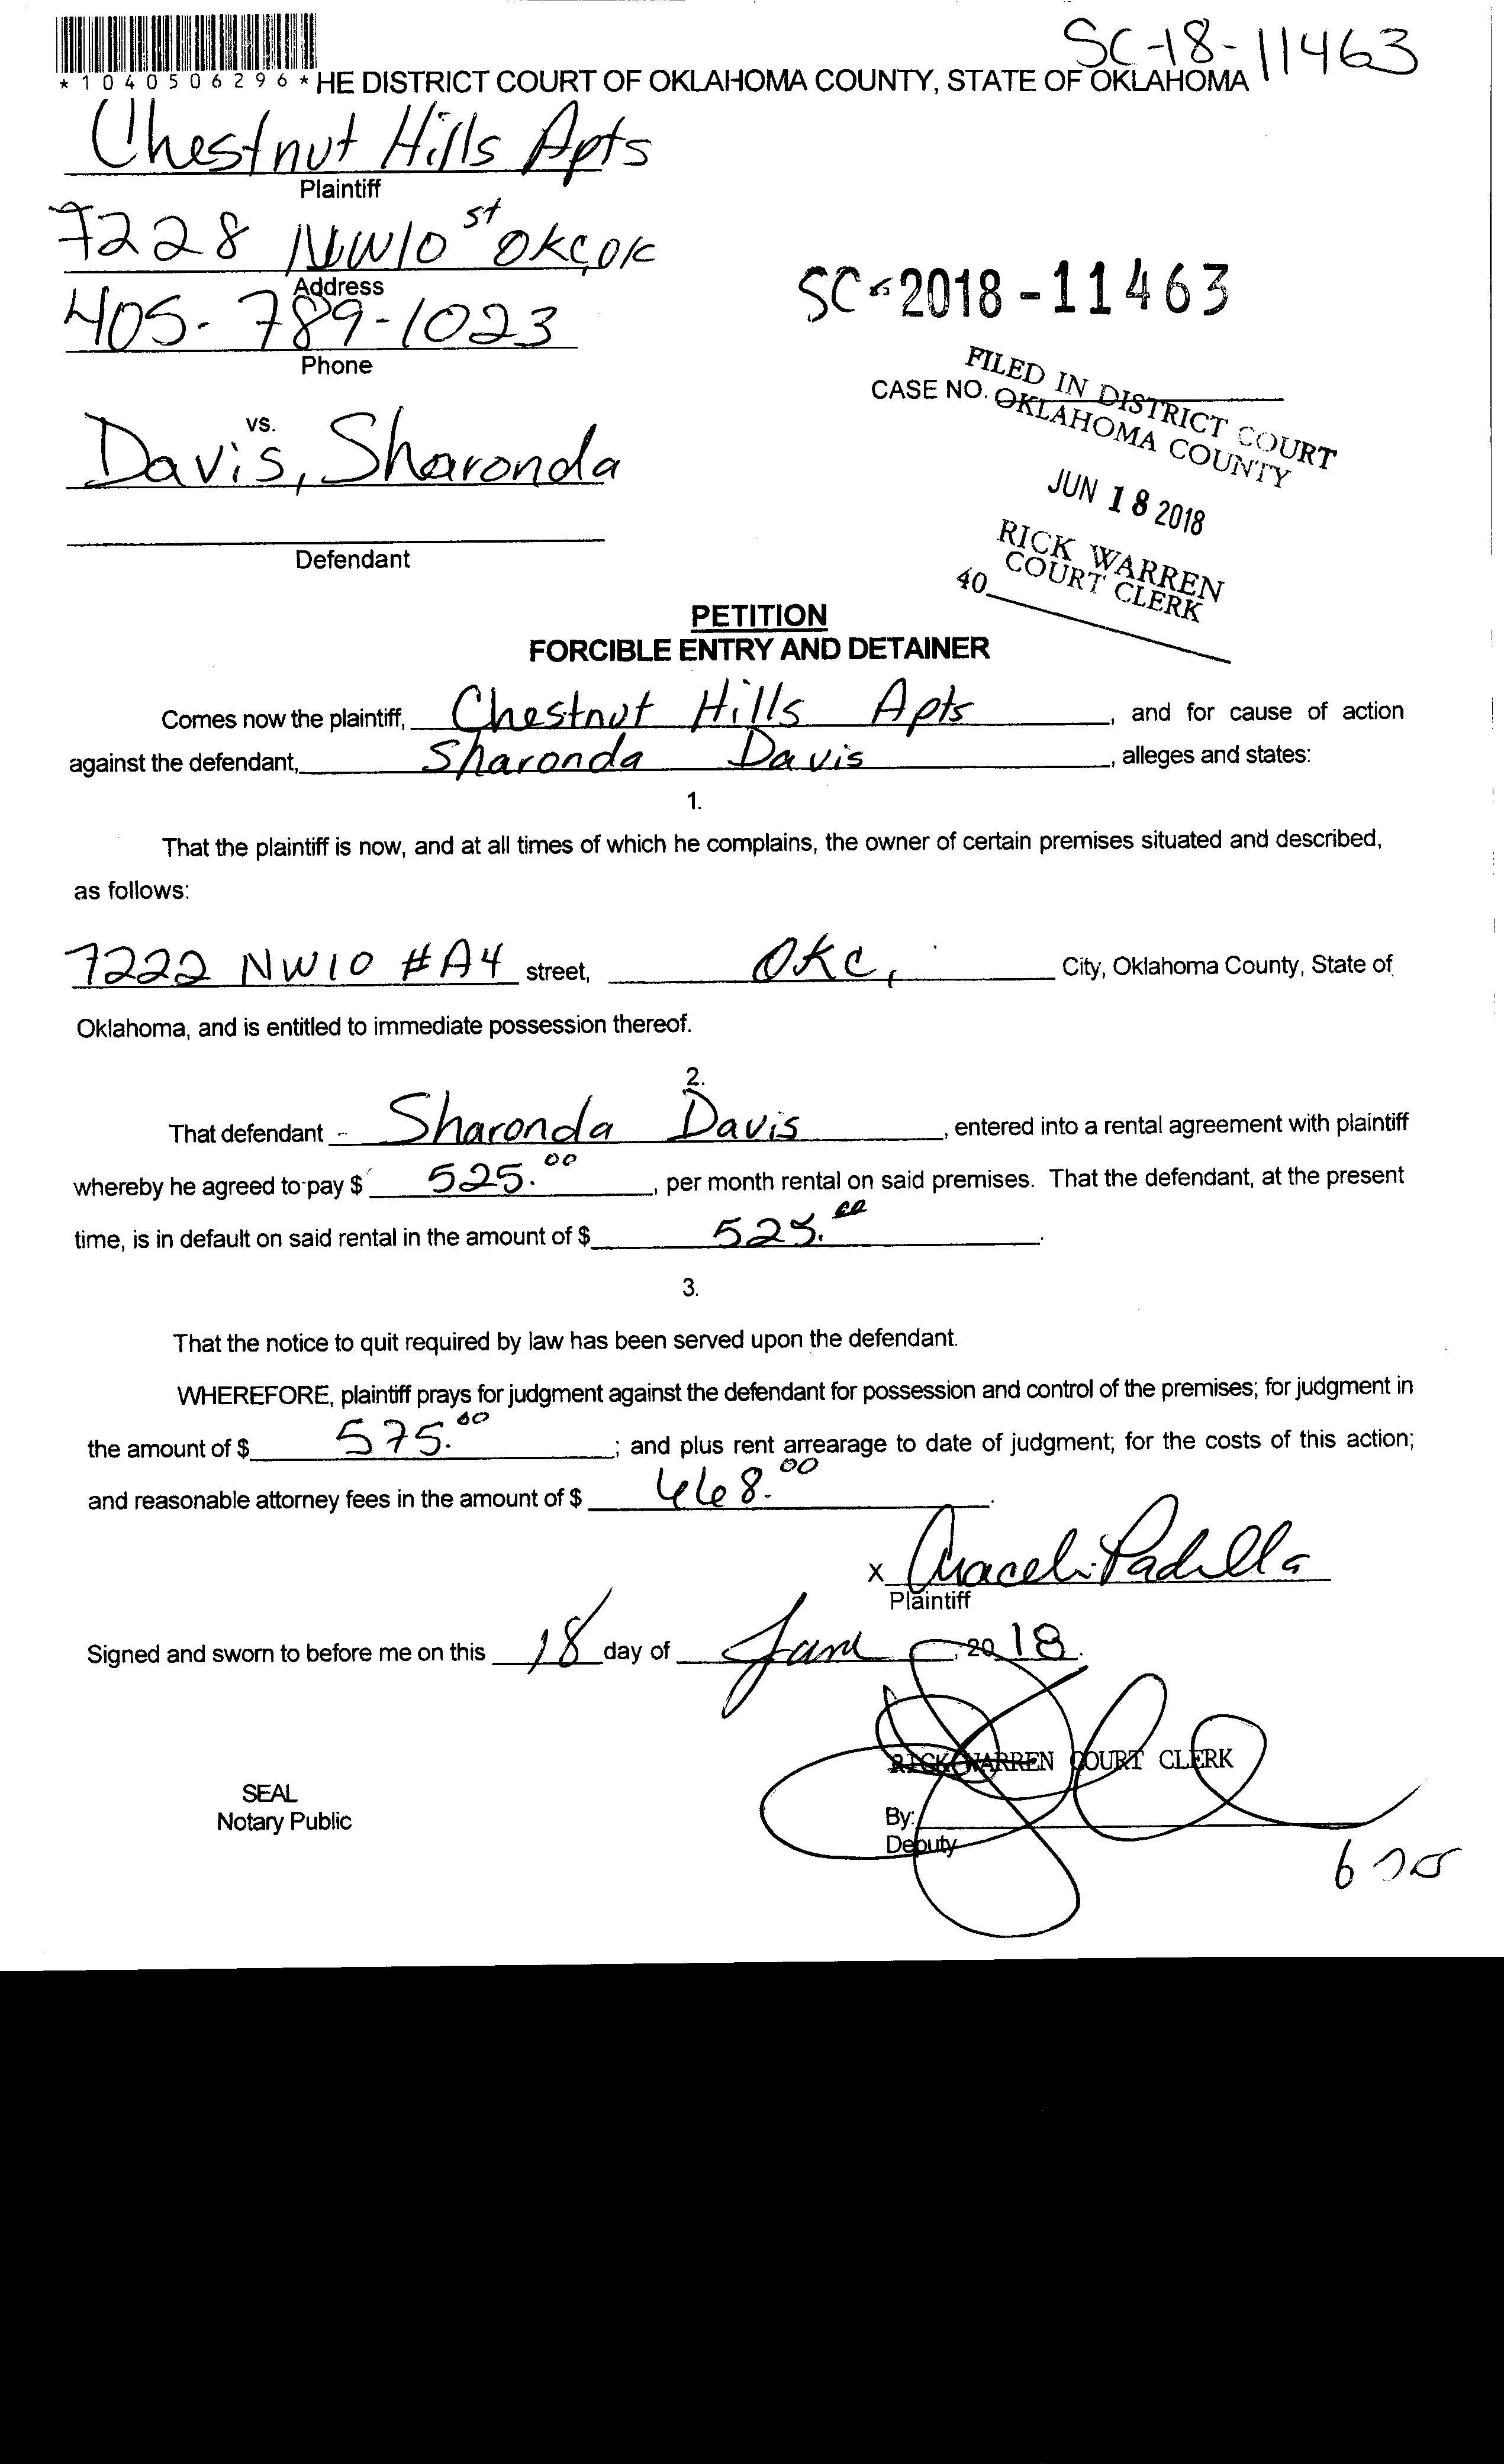 SC-18-11463
*1040506296* HE DISTRICT COURT OF OKLAHOMA COUNTY, STATE OF OKLAHOMA
Chestnut Hills Apts
Plaintiff
7228 NW10 st OKC, OK
Address
405-789-1023
Phone
SC-2018-11463
CASE NO.
FILED IN DISTRICT COURT
OKLAHOMA COUNTY
JUN 18 2018
RICK WARREN
COURT CLERK
40
vs.
Davis, Sharonda
Defendant
PETITION
FORCIBLE ENTRY AND DETAINER
Comes now the plaintiff, Chestnut Hills Apts, and for cause of action
against the defendant, Sharonda Davis, alleges and states:
1.
That the plaintiff is now, and at all times of which he complains, the owner of certain premises situated and described,
as follows:
7222 NW10 #A4 street, OKC, City, Oklahoma County, State of
Oklahoma, and is entitled to immediate possession thereof.
2.
That defendant Sharonda Davis, entered into a rental agreement with plaintiff
whereby he agreed to pay $ 525.00, per month rental on said premises. That the defendant, at the present
time, is in default on said rental in the amount of $ 525.00.
3.
That the notice to quit required by law has been served upon the defendant.
WHEREFORE, plaintiff prays for judgment against the defendant for possession and control of the premises; for judgment in
the amount of $ 575.00; and plus rent arrearage to date of judgment; for the costs of this action;
and reasonable attorney fees in the amount of $ .
x Araceli Padilla
Plaintiff
Signed and sworn to before me on this 18 day of June, 2018.
RICK WARREN COURT CLERK
SEAL
Notary Public
By:
Deputy